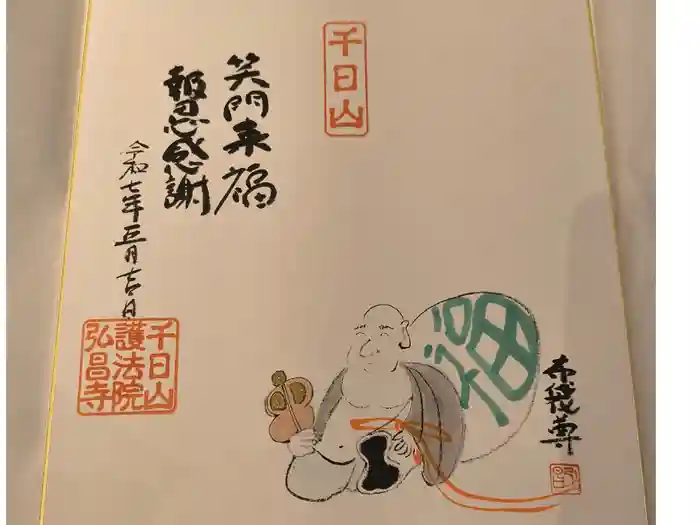 千日山
笑門来福
報恩感謝
令和七年五月吉日
千日山
護法院
弘昌寺
福
布袋尊